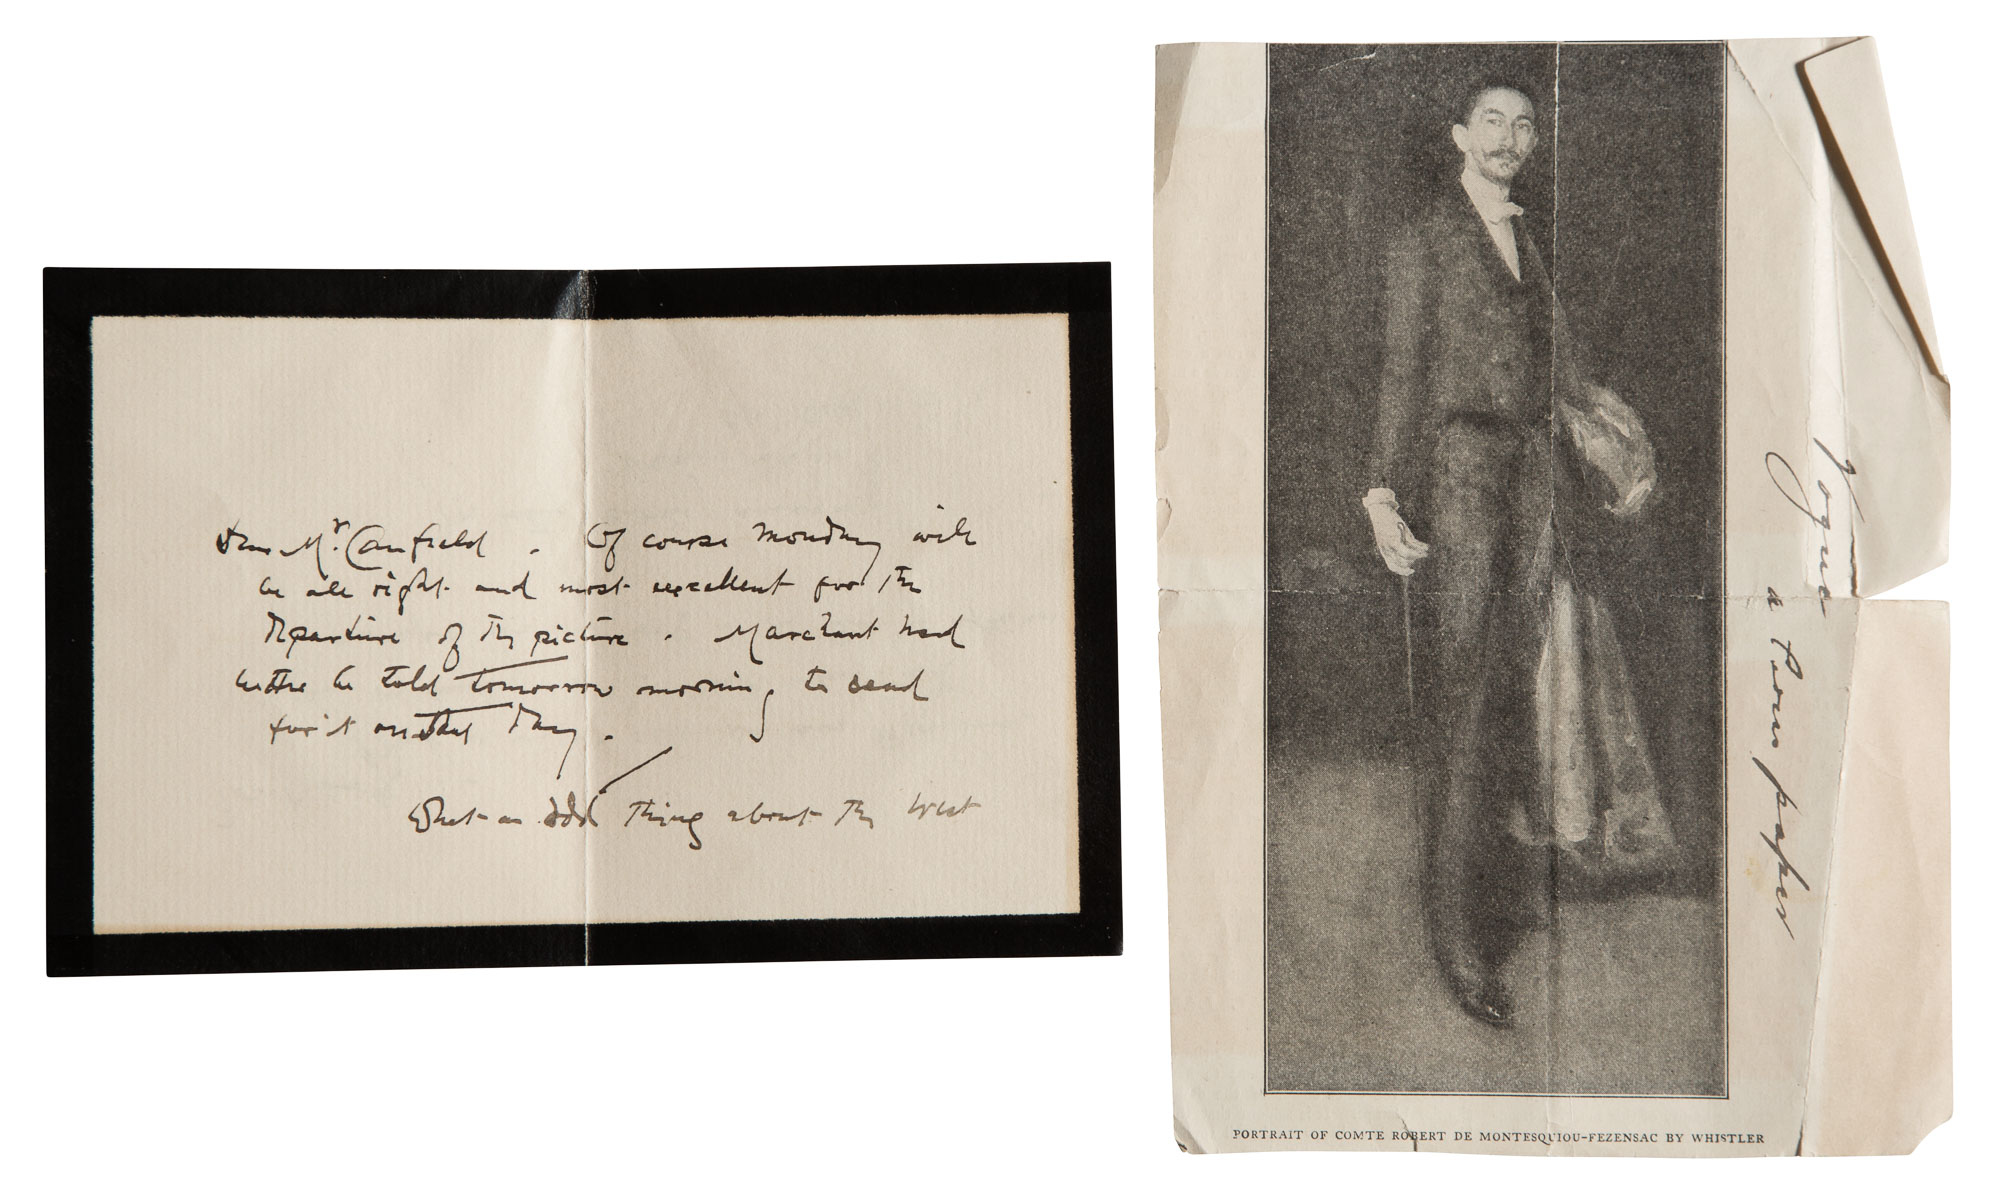 Dear Mr. Canfield. Of course Monday will
be all right and most excellent for the
departure of the picture. Marchant had
better be told tomorrow morning, to send
for it on that day.
What an odd thing about the
Vogue
a Paris paper
PORTRAIT OF COMTE ROBERT DE MONTESQUIOU-FEZENSAC BY WHISTLER